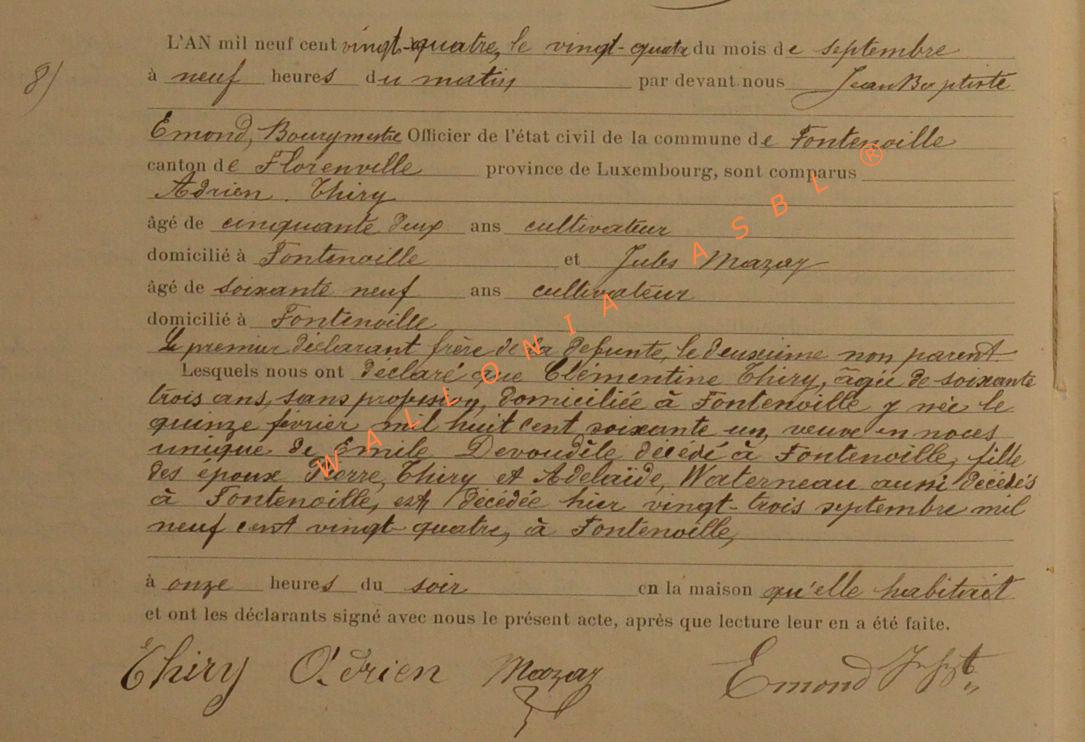 8)
L'AN mil neuf cent vingt-quatre, le vingt-quatre du mois de septembre
à neuf heures du matin par devant nous Jean Baptiste
Emond, Bourgmestre Officier de l'état civil de la commune de Fontenoille
canton de Florenville province de Luxembourg, sont comparus
Adrien Thiry
âgé de cinquante deux ans cultivateur
domicilié à Fontenoille et Jules Mazay
âgé de soixante neuf ans cultivateur
domicilié à Fontenoille
Le premier déclarant frère de la défunte, le deuxième non parent
Lesquels nous ont déclaré que Clémentine Thiry, âgée de soixante
trois ans, sans profession, domiciliée à Fontenoille y née le
quinze février mil huit cent soixante un, veuve en noces
unique de Emile Devoudèle décédé à Fontenoille, fille
des époux Pierre Thiry et Adelaïde Waterneau aussi décédés
à Fontenoille, est décédée hier vingt-trois septembre mil
neuf cent vingt-quatre, à Fontenoille,
à onze heures du soir en la maison qu'elle habitait
et ont les déclarants signé avec nous le présent acte, après que lecture leur en a été faite.
Thiry Adrien Mazay Emond
WALLONIA ASBL ®